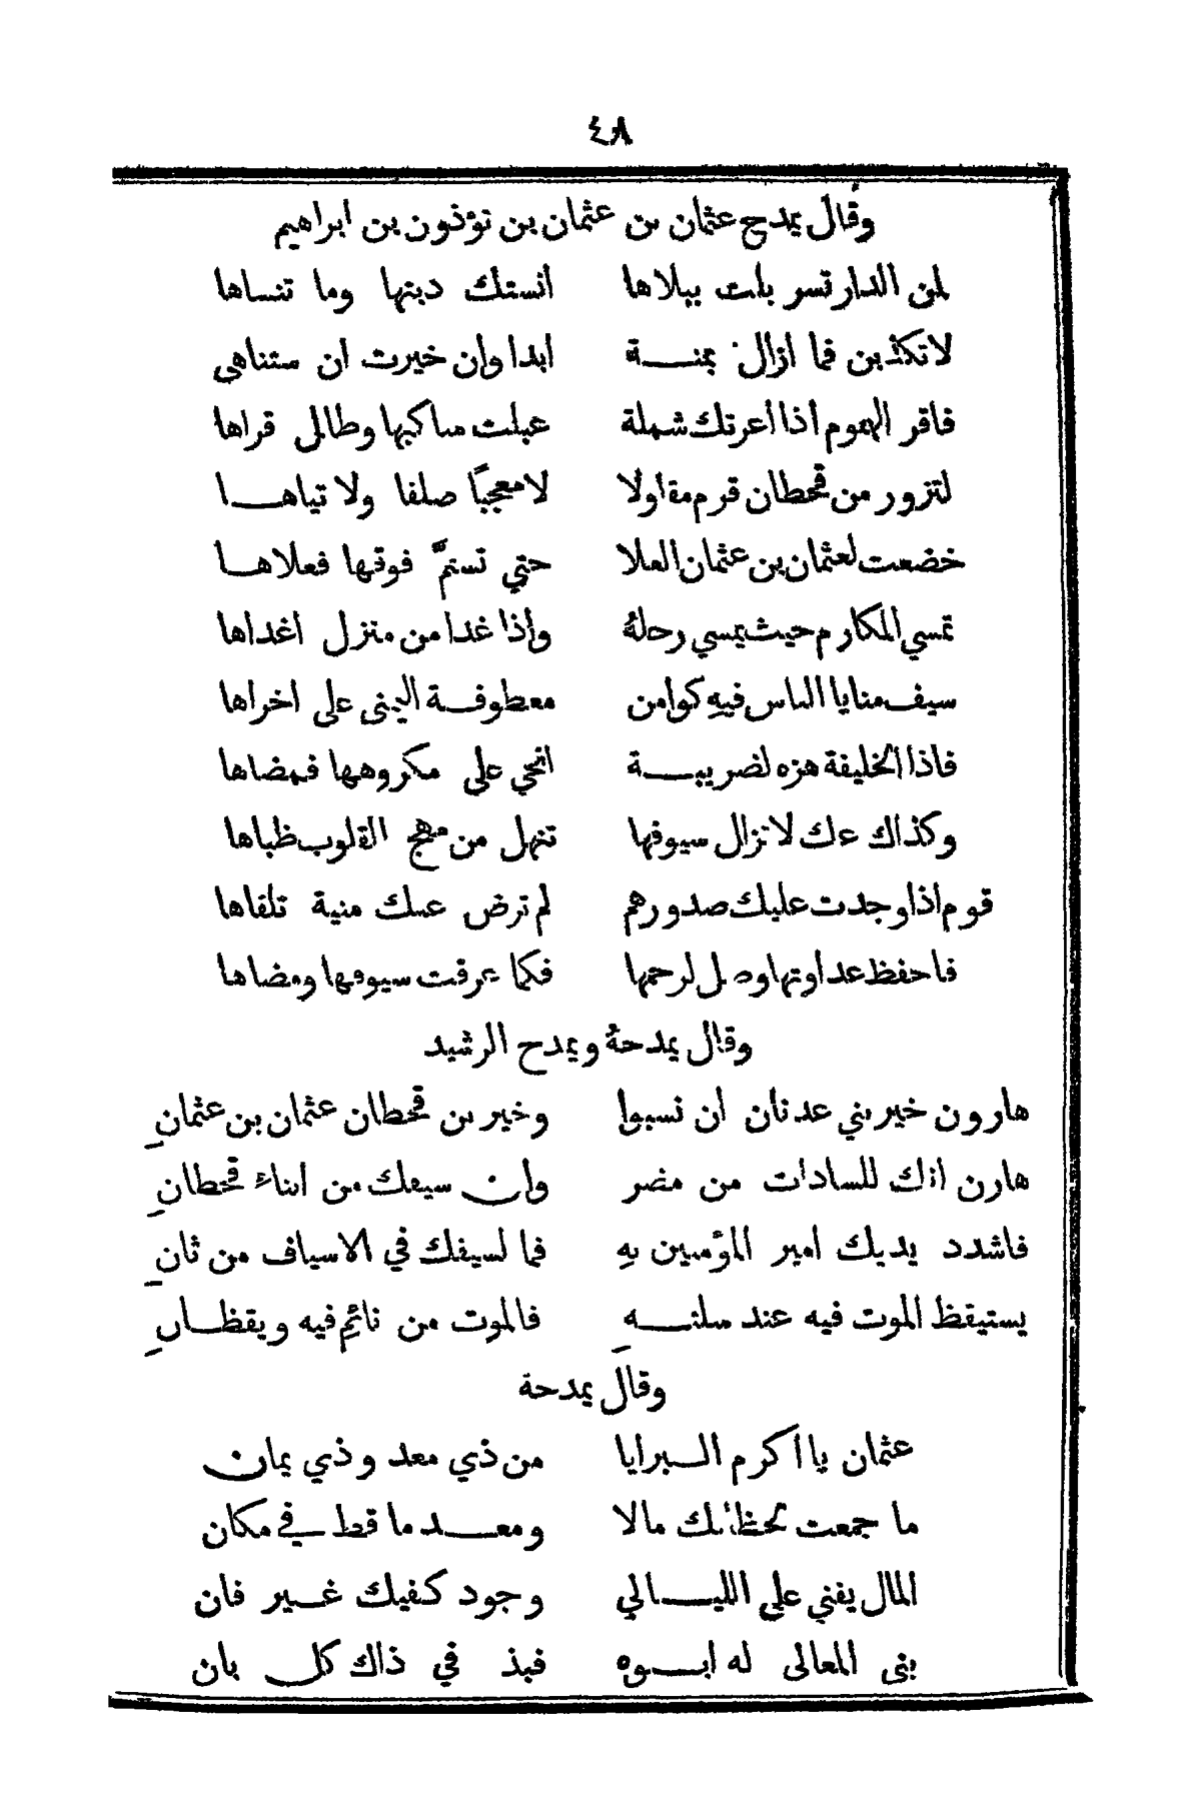 ٤٨
وقال يمدح عثمان بن عثمان بن نؤذون بن ابراهيم
لمن الدار تسر بلت ببلاها انستك دبنها وما تنساها
لا تكذبن فما ازال بمنـــة ابدا وان خيرت ان ستناهى
فاقر الهموم أذا أعرتك شملة عبلت مناكبها وطالى قراها
لتزور من قحطان قرم مقاولا لا معجبًا صلفا ولا تياهـــا
خضعت لعثمان بن عثمان العلا حتي تسنمَّ فوقها فعلاهـــا
تمسي المكارم حيث يمسي رحلهُ وأذا غدا من منزل اغداها
سيف منايا الناس فيهِ كوامن معطوفـــة اليمنى على اخراها
فاذا الخليفة هزه لضريبـــة انحي على مكروهها فمضاها
وكذاك عك لا تزال سيوفها تنهل من مهج القلوب ظباها
قوم اذا وجدت عليك صدورهم لم ترض عنك منية تلقاها
فاحفظ عداوتها وصل لرحمها فكما عرقت سيوفها ومضاها
وقال يمدحهُ ويمدح الرشيد
هارون خير بني عدنان ان نسبوا وخير بن قحطان عثمان بن عثمانِ
هارن انك للسادات من مضر وان سيفك من ابناء قحطانِ
فاشدد يديك امير المؤمنين بهِ فما لسيفك في الاسياف من ثانِ
يستيقظ الموت فيه عند سلتـــهِ فالموت من نائمِ فيه ويقظـــانِ
وقال يمدحة
عثمان يا اكرم الـــبرايا من ذي معد وذي يمان
ما جمعت لحظاتك مالا ومعـــد ما قط في مكان
المال يفني على الليـــالي وجود كفيك غـــير فان
بنى المعالى له ابـــوه فبذ في ذاك كل بان